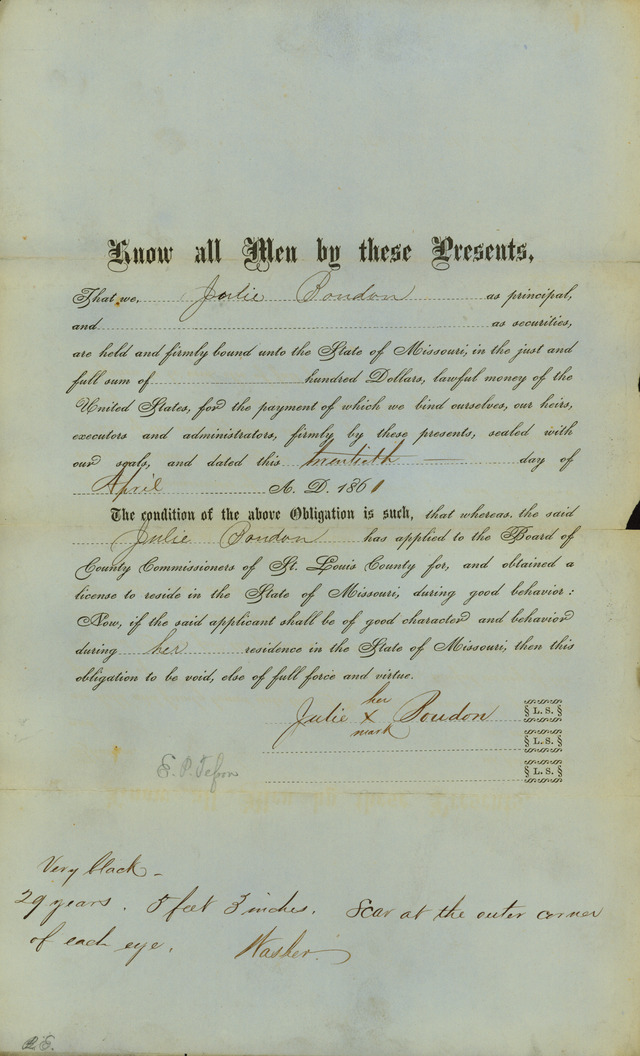 Know all Men by these Presents,
That we, Julie Boudon as principal,
and as securities,
are held and firmly bound unto the State of Missouri, in the just and
full sum of hundred Dollars, lawful money of the
United States, for the payment of which we bind ourselves, our heirs,
executors and administrators, firmly by these presents, sealed with
our seals, and dated this twentieth day of
April A. D. 1861
The condition of the above Obligation is such, that whereas, the said
Julie Boudon has applied to the Board of
County Commissioners of St. Louis County for, and obtained a
license to reside in the State of Missouri, during good behavior:
Now, if the said applicant shall be of good character and behavior
during her residence in the State of Missouri, then this
obligation to be void, else of full force and virtue.
her
Julie X Boudon § L. S. §
mark
§ L. S. §
§ L. S. §
E. P.
Very black –
29 years. 5 feet 3 inches. Scar at the outer corner
of each eye. Washer.